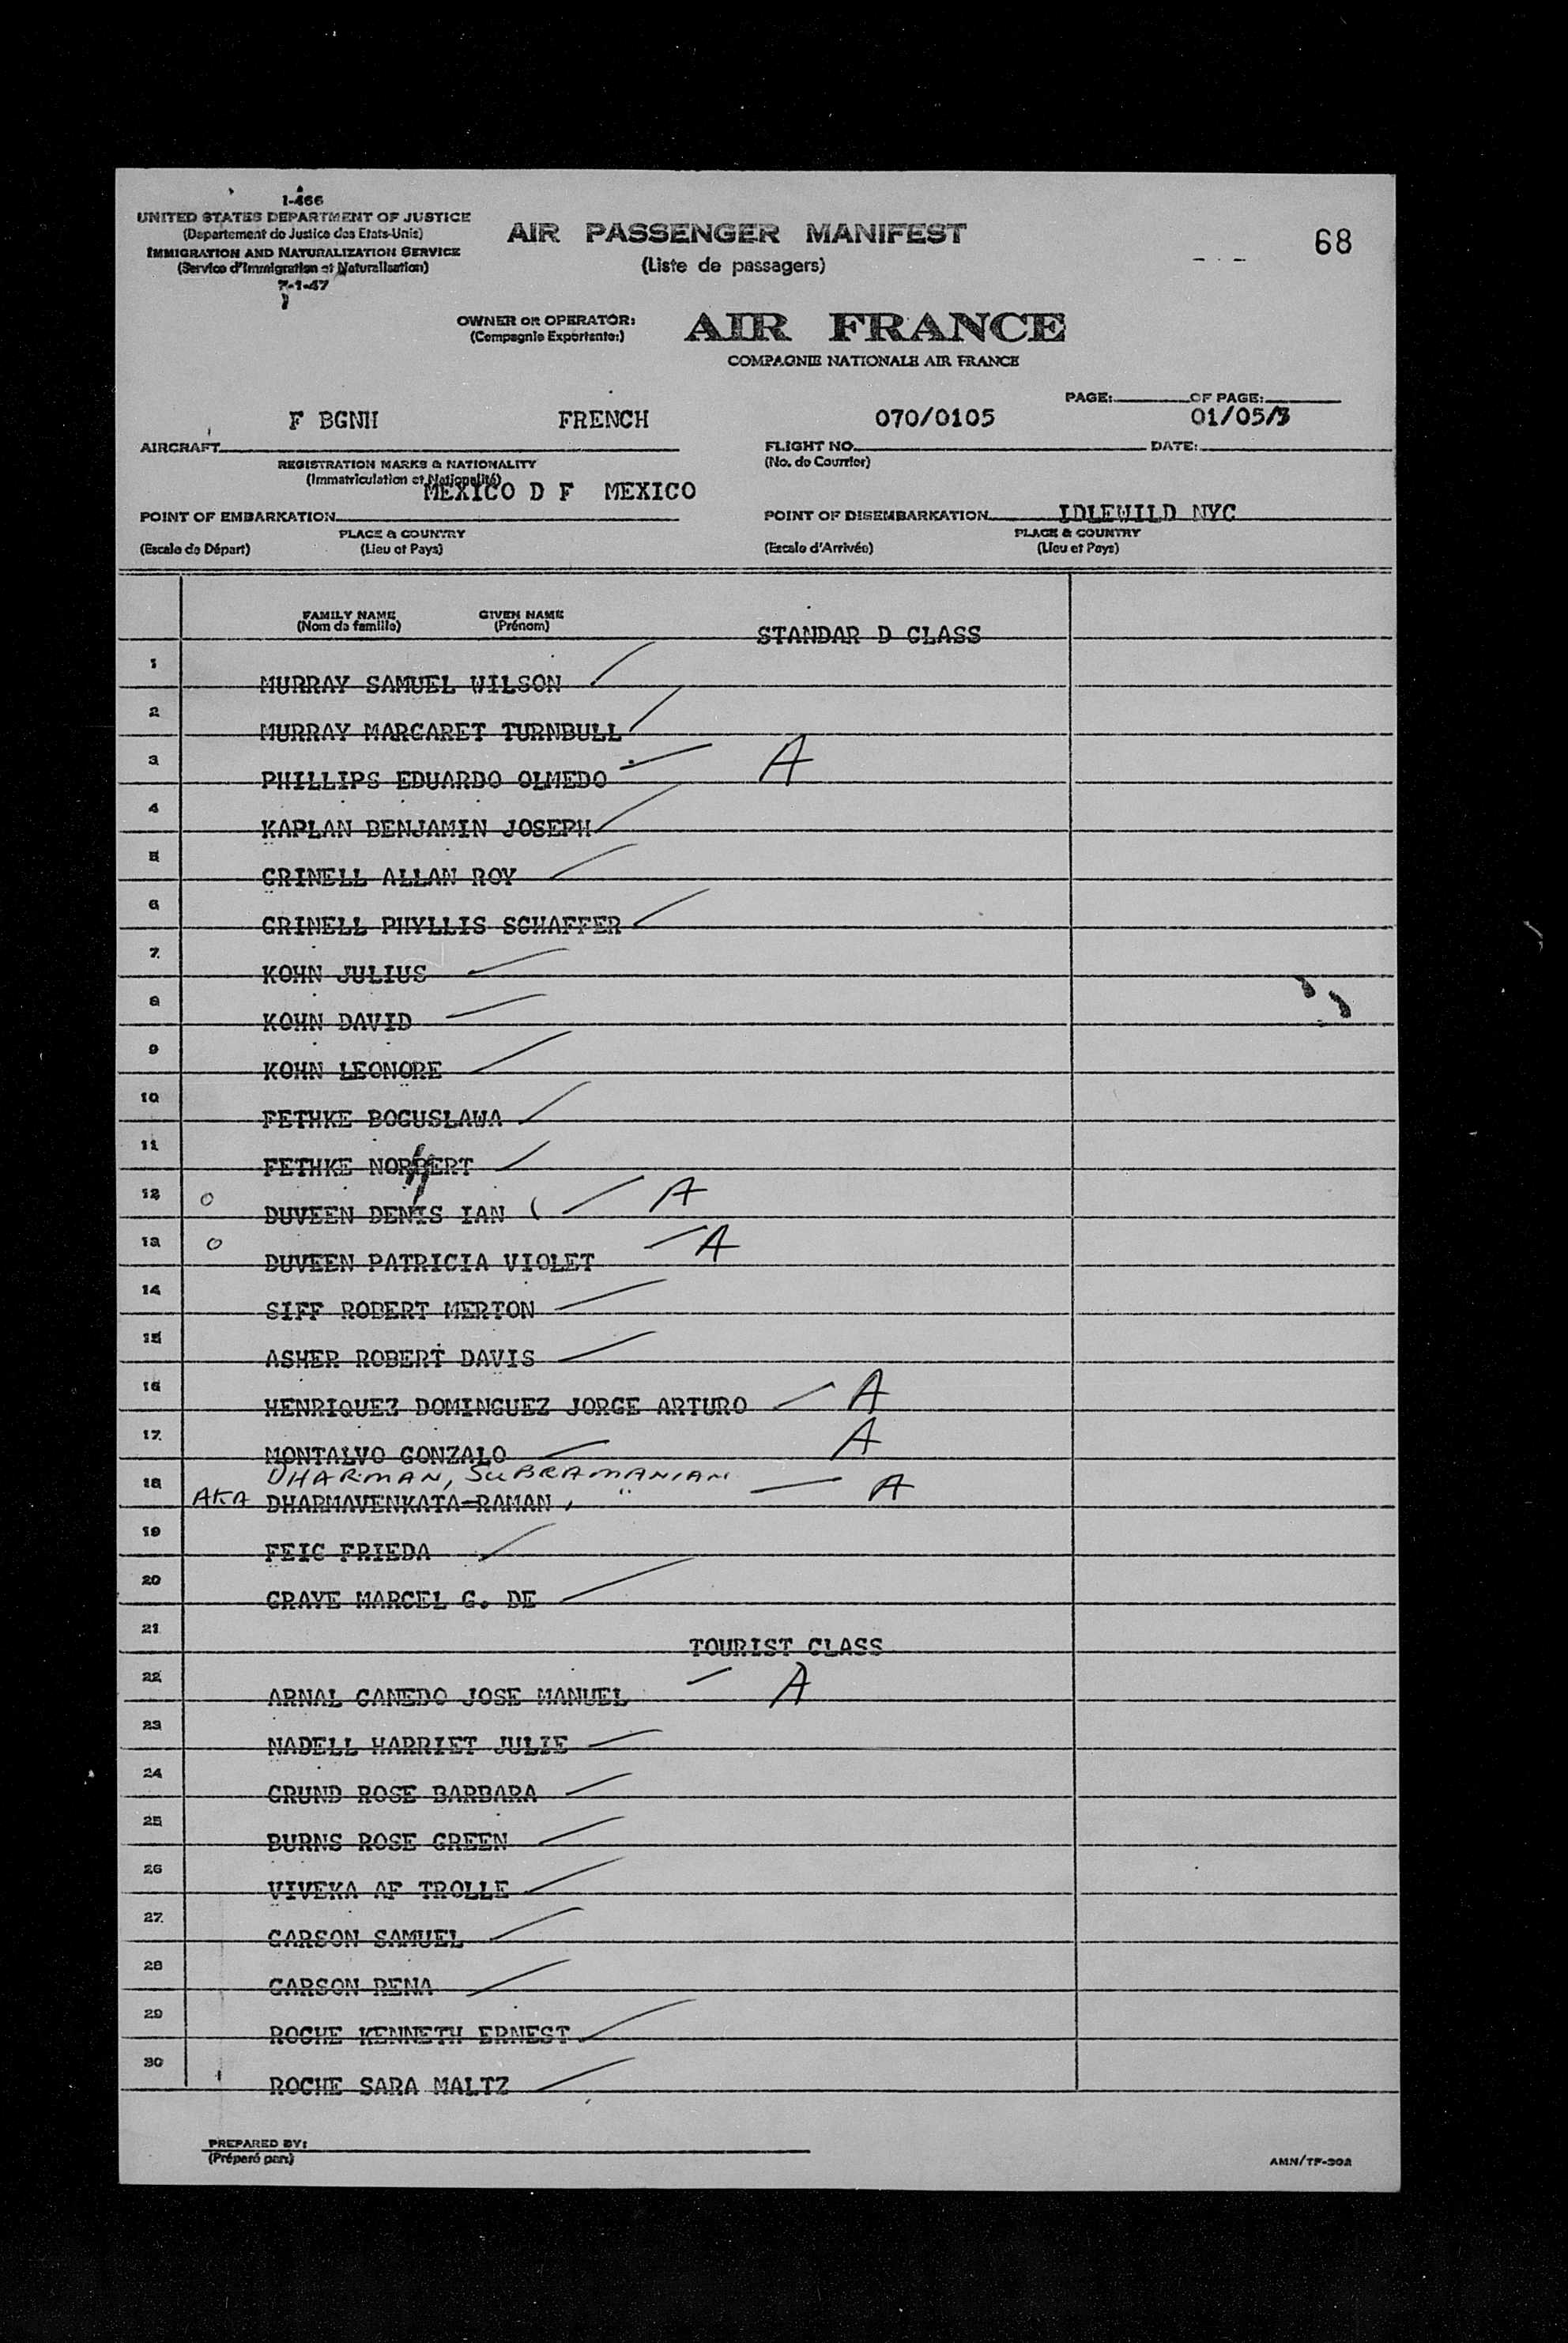 I-466
UNITED STATES DEPARTMENT OF JUSTICE
(Departement de Justice des Etats-Unis)
IMMIGRATION AND NATURALIZATION SERVICE
(Service d'Immigration et Naturalisation)
7-1-47
AIR PASSENGER MANIFEST
(Liste de passagers)
68
OWNER OR OPERATOR:
(Compagnie Exportante:)
AIR FRANCE
COMPAGNIE NATIONALE AIR FRANCE
PAGE: OF PAGE:
F BGNH FRENCH 070/0105 01/05/
AIRCRAFT FLIGHT NO. DATE:
REGISTRATION MARKS & NATIONALITY (No. de Courrier)
(Immatriculation et Nationalité)
MEXICO D F MEXICO
POINT OF EMBARKATION POINT OF DISEMBARKATION IDLEWILD NYC
PLACE & COUNTRY PLACE & COUNTRY
(Escale de Départ) (Lieu et Pays) (Escale d'Arrivée) (Lieu et Pays)
FAMILY NAME GIVEN NAME
(Nom de famille) (Prénom)
STANDAR D CLASS
1 MURRAY SAMUEL WILSON
2 MURRAY MARGARET TURNBULL
3 PHILLIPS EDUARDO OLMEDO A
4 KAPLAN BENJAMIN JOSEPH
5 GRINELL ALLAN ROY
6 GRINELL PHYLLIS SCHAFFER
7 KOHN JULIUS
8 KOHN DAVID
9 KOHN LEONORE
10 FETHKE BOGUSLAWA
11 FETHKE NORBERT
12 O DUVEEN DENIS IAN A
13 O DUVEEN PATRICIA VIOLET A
14 SIFF ROBERT MERTON
15 ASHER ROBERT DAVIS
16 HENRIQUEZ DOMINGUEZ JORGE ARTURO A
17 MONTALVO GONZALO A
DHARMAN, SUBRAMANIAN
18 AKA DHARMAVENKATA-RAMAN, " A
19 FEIG FRIEDA
20 GRAVE MARCEL G. DE
21 TOURIST CLASS
22 ARNAL CANEDO JOSE MANUEL A
23 NADELL HARRIET JULIE
24 GRUND ROSE BARBARA
25 BURNS ROSE GREEN
26 VIVEKA AF TROLLE
27 CARSON SAMUEL
28 CARSON RENA
29 ROCHE KENNETH ERNEST
30 ROCHE SARA MALTZ
PREPARED BY:
(Préparé par:)
AMN/TF-302